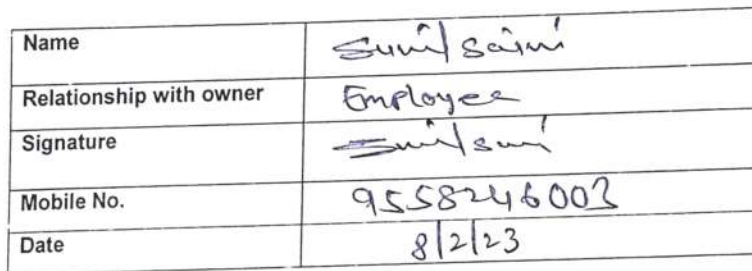 Name Sunil Saini
Relationship with owner Employee
Signature
Mobile No. 9558246003
Date 8/2/23